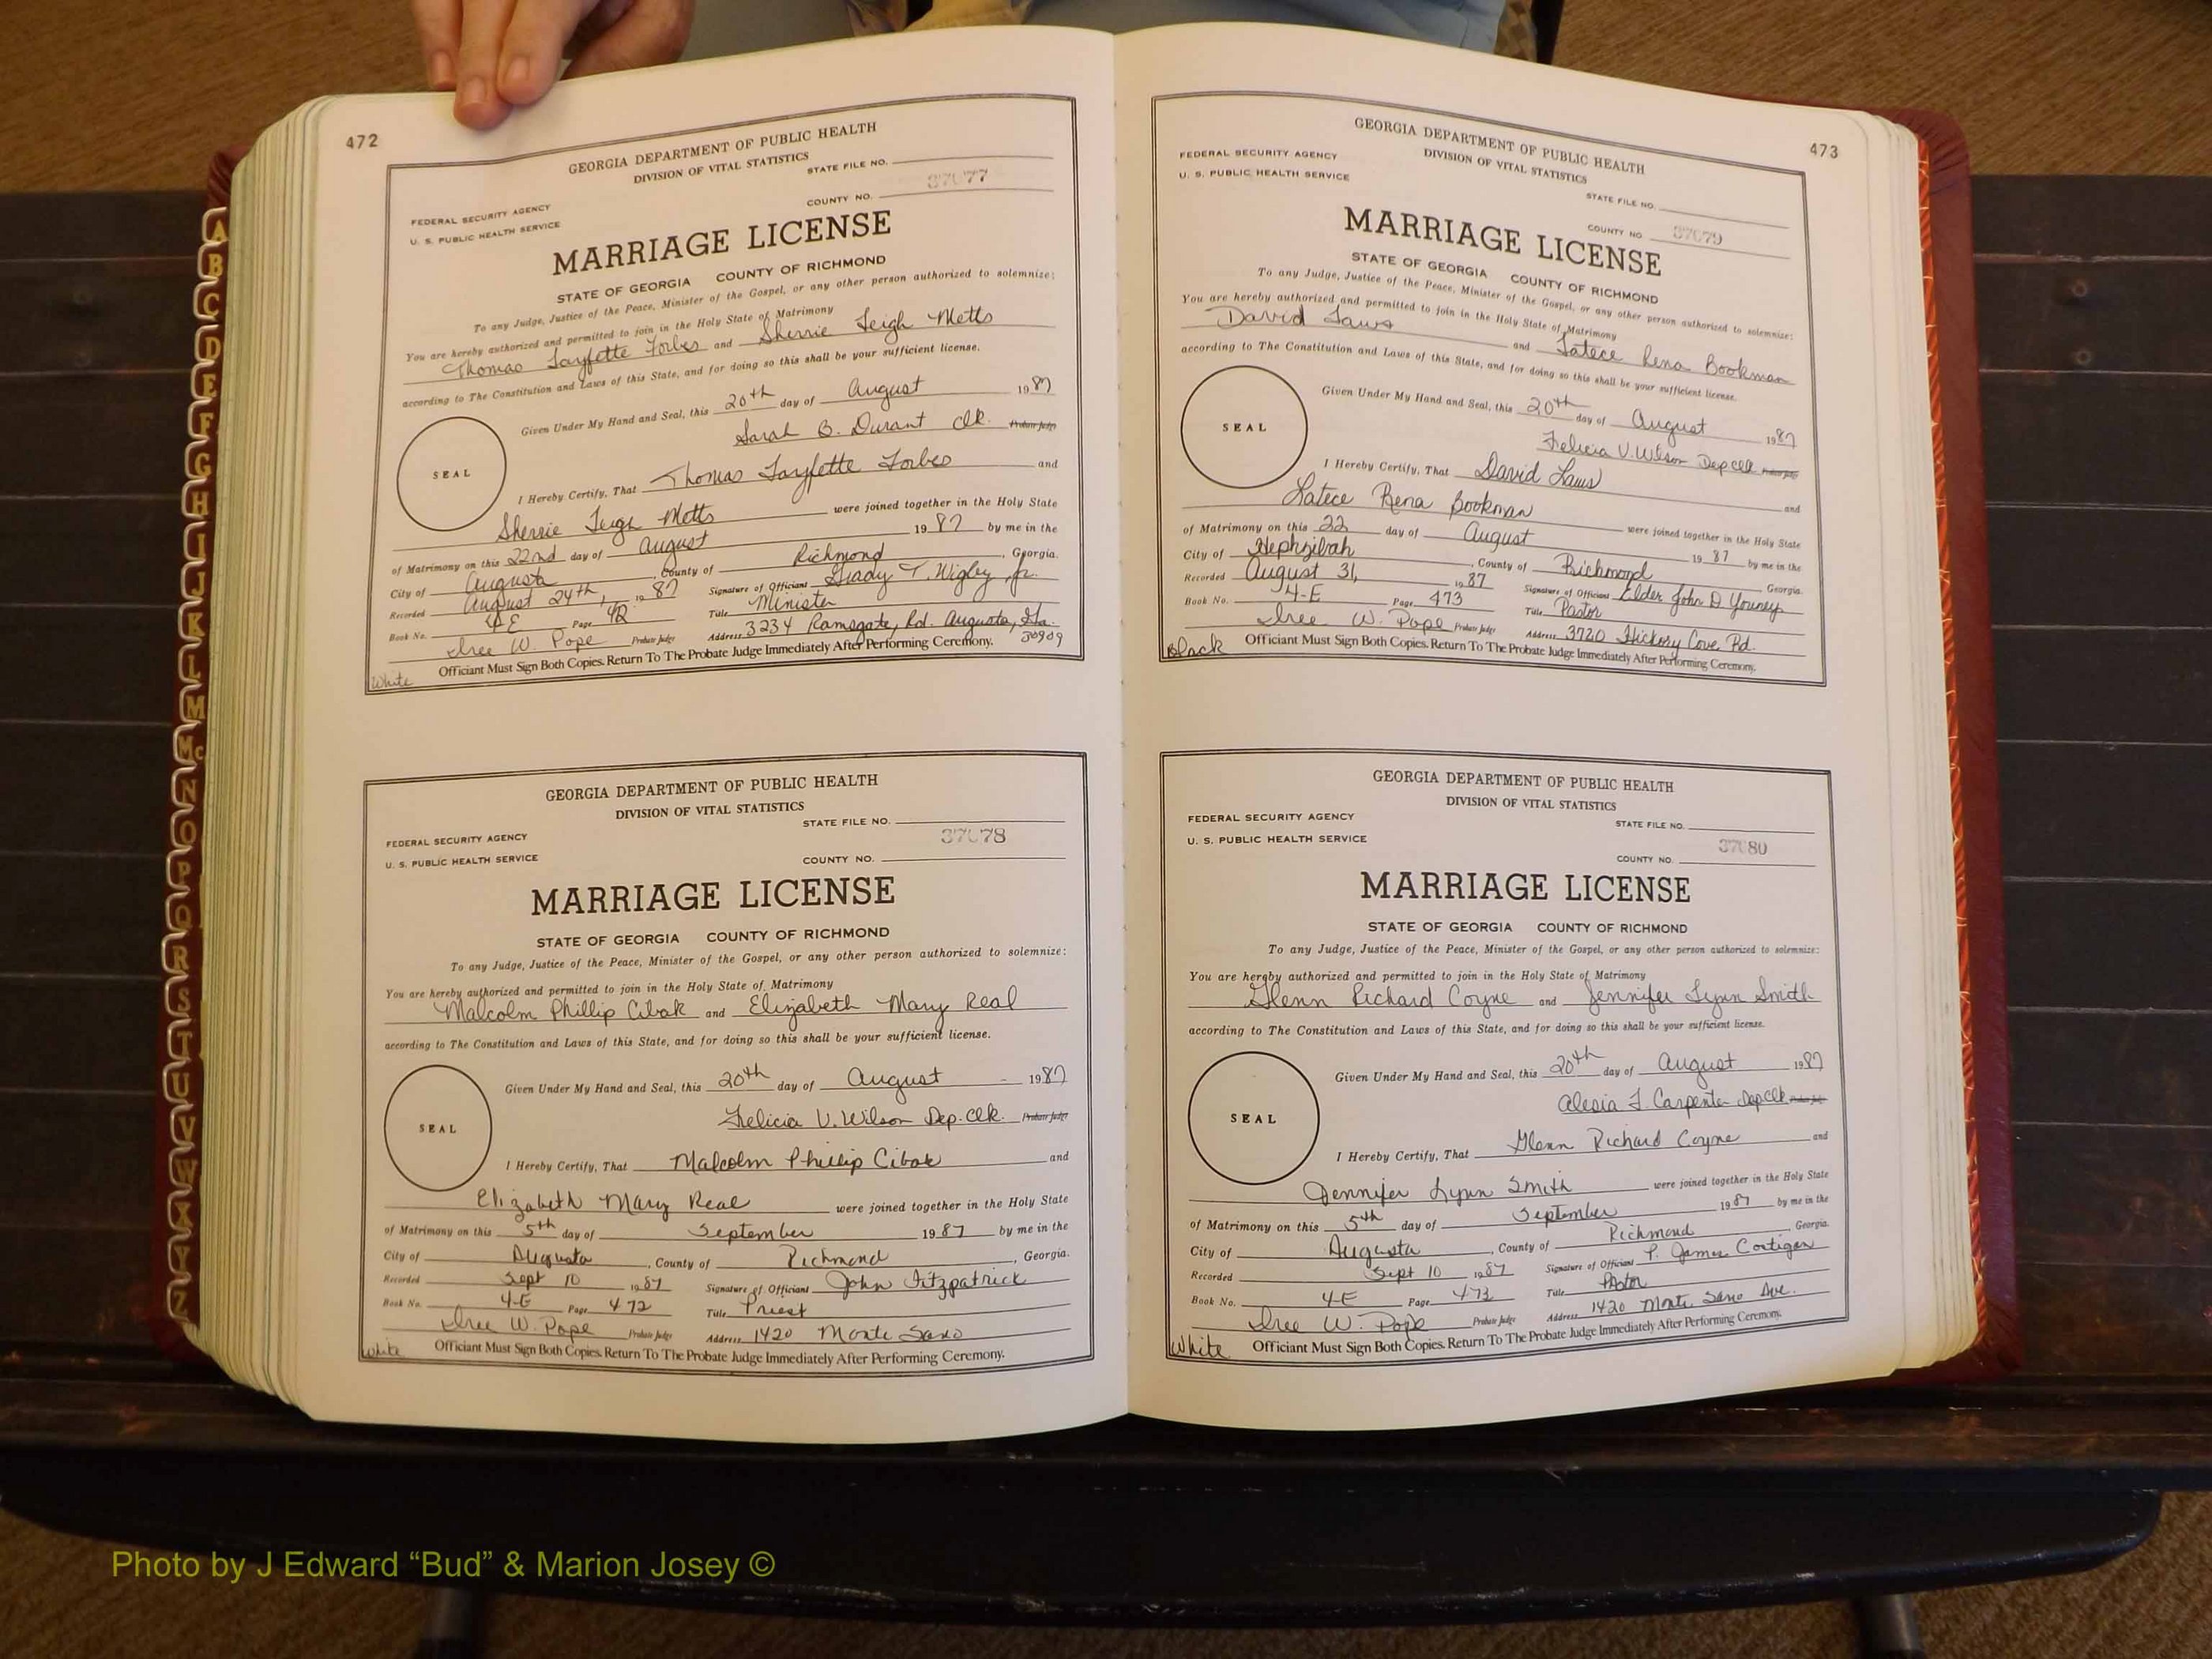 472
GEORGIA DEPARTMENT OF PUBLIC HEALTH
DIVISION OF VITAL STATISTICS
STATE FILE NO.
37077
FEDERAL SECURITY AGENCY
COUNTY NO.
U. S. PUBLIC HEALTH SERVICE
MARRIAGE LICENSE
STATE OF GEORGIA COUNTY OF RICHMOND
To any Judge, Justice of the Peace, Minister of the Gospel, or any other person authorized to solemnize:
You are hereby authorized and permitted to join in the Holy State of Matrimony
Thomas Layfette Forbes and Sherrie Leigh Metts
according to The Constitution and Laws of this State, and for doing so this shall be your sufficient license.
Given Under My Hand and Seal, this 20th day of August 1987
Sarah B. Durant Clk. Probate Judge
SEAL
I Hereby Certify, That Thomas Layfette Forbes and
Sherrie Leigh Metts were joined together in the Holy State
of Matrimony on this 22nd day of August 1987 by me in the
City of Augusta, County of Richmond, Georgia.
Recorded August 24th, 1987 Signature of Officiant Grady T. Wigley, Jr.
Book No. 4E Page 472 Title Minister
Iree W. Pope Probate Judge Address 3234 Ramsgate, Rd. Augusta, Ga. 30909
White Officiant Must Sign Both Copies. Return To The Probate Judge Immediately After Performing Ceremony.
GEORGIA DEPARTMENT OF PUBLIC HEALTH
DIVISION OF VITAL STATISTICS
STATE FILE NO.
37078
FEDERAL SECURITY AGENCY
U. S. PUBLIC HEALTH SERVICE COUNTY NO.
MARRIAGE LICENSE
STATE OF GEORGIA COUNTY OF RICHMOND
To any Judge, Justice of the Peace, Minister of the Gospel, or any other person authorized to solemnize:
You are hereby authorized and permitted to join in the Holy State of Matrimony
Malcolm Phillip Cibak and Elizabeth Mary Real
according to The Constitution and Laws of this State, and for doing so this shall be your sufficient license.
Given Under My Hand and Seal, this 20th day of August 1987
Felicia V. Wilson Dep. Clk. Probate Judge
SEAL
I Hereby Certify, That Malcolm Phillip Cibak and
Elizabeth Mary Real were joined together in the Holy State
of Matrimony on this 5th day of September 1987 by me in the
City of Augusta, County of Richmond, Georgia.
Recorded Sept 10 1987 Signature of Officiant John Fitzpatrick
Book No. 4-E Page 472 Title Priest
Iree W. Pope Probate Judge Address 1420 Monte Sano
White Officiant Must Sign Both Copies. Return To The Probate Judge Immediately After Performing Ceremony.
473
GEORGIA DEPARTMENT OF PUBLIC HEALTH
FEDERAL SECURITY AGENCY DIVISION OF VITAL STATISTICS
U. S. PUBLIC HEALTH SERVICE
STATE FILE NO.
COUNTY NO 37079
MARRIAGE LICENSE
STATE OF GEORGIA COUNTY OF RICHMOND
To any Judge, Justice of the Peace, Minister of the Gospel, or any other person authorized to solemnize:
You are hereby authorized and permitted to join in the Holy State of Matrimony
David Laws and Latece Rena Bookman
according to The Constitution and Laws of this State, and for doing so this shall be your sufficient license.
Given Under My Hand and Seal, this 20th day of August 1987
Felicia V. Wilson Dep Clk Probate Judge
SEAL
I Hereby Certify, That David Laws and
Latece Rena Bookman were joined together in the Holy State
of Matrimony on this 22 day of August 1987 by me in the
City of Hephzibah, County of Richmond Georgia.
Recorded August 31, 1987 Signature of Officiant Elder John D Young
Book No. 4-E Page 473 Title Pastor
Iree W. Pope Probate Judge Address 3720 Hickory Cove Rd.
Black Officiant Must Sign Both Copies. Return To The Probate Judge Immediately After Performing Ceremony.
GEORGIA DEPARTMENT OF PUBLIC HEALTH
DIVISION OF VITAL STATISTICS
FEDERAL SECURITY AGENCY STATE FILE NO.
U. S. PUBLIC HEALTH SERVICE 37080
COUNTY NO.
MARRIAGE LICENSE
STATE OF GEORGIA COUNTY OF RICHMOND
To any Judge, Justice of the Peace, Minister of the Gospel, or any other person authorized to solemnize:
You are hereby authorized and permitted to join in the Holy State of Matrimony
Glenn Richard Coyne and Jennifer Lynn Smith
according to The Constitution and Laws of this State, and for doing so this shall be your sufficient license.
Given Under My Hand and Seal, this 20th day of August 1987
Alesia L. Carpenter Dep Clk Probate Judge
SEAL
I Hereby Certify, That Glenn Richard Coyne and
Jennifer Lynn Smith were joined together in the Holy State
of Matrimony on this 5th day of September 1987 by me in the
City of Augusta, County of Richmond, Georgia.
Recorded Sept 10 1987 Signature of Officiant P. James Costigan
Book No. 4-E Page 473 Title Pastor
Iree W. Pope Probate Judge Address 1420 Monte Sano Ave.
White Officiant Must Sign Both Copies. Return To The Probate Judge Immediately After Performing Ceremony.
A
B
C
D
E
F
G
H
I
J
K
L
M
Mc
N
O
P
Q
R
S
T
U
V
W
X
Y
Z
Photo by J Edward “Bud” & Marion Josey ©